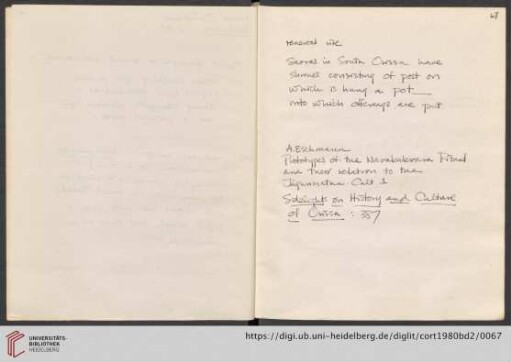 47
renewal rite
Saoras in South Orissa have
shrines consisting of post on
which is hung a pot
into which offerings are put
A. Eschmann
Prototypes of the Navakalevara Ritual
and their relation to the
Jagannatha Cult
Sidelights on History and Culture
of Orissa : 357
UNIVERSITÄTS-
BIBLIOTHEK
HEIDELBERG
https://digi.ub.uni-heidelberg.de/diglit/cort1980bd2/0067